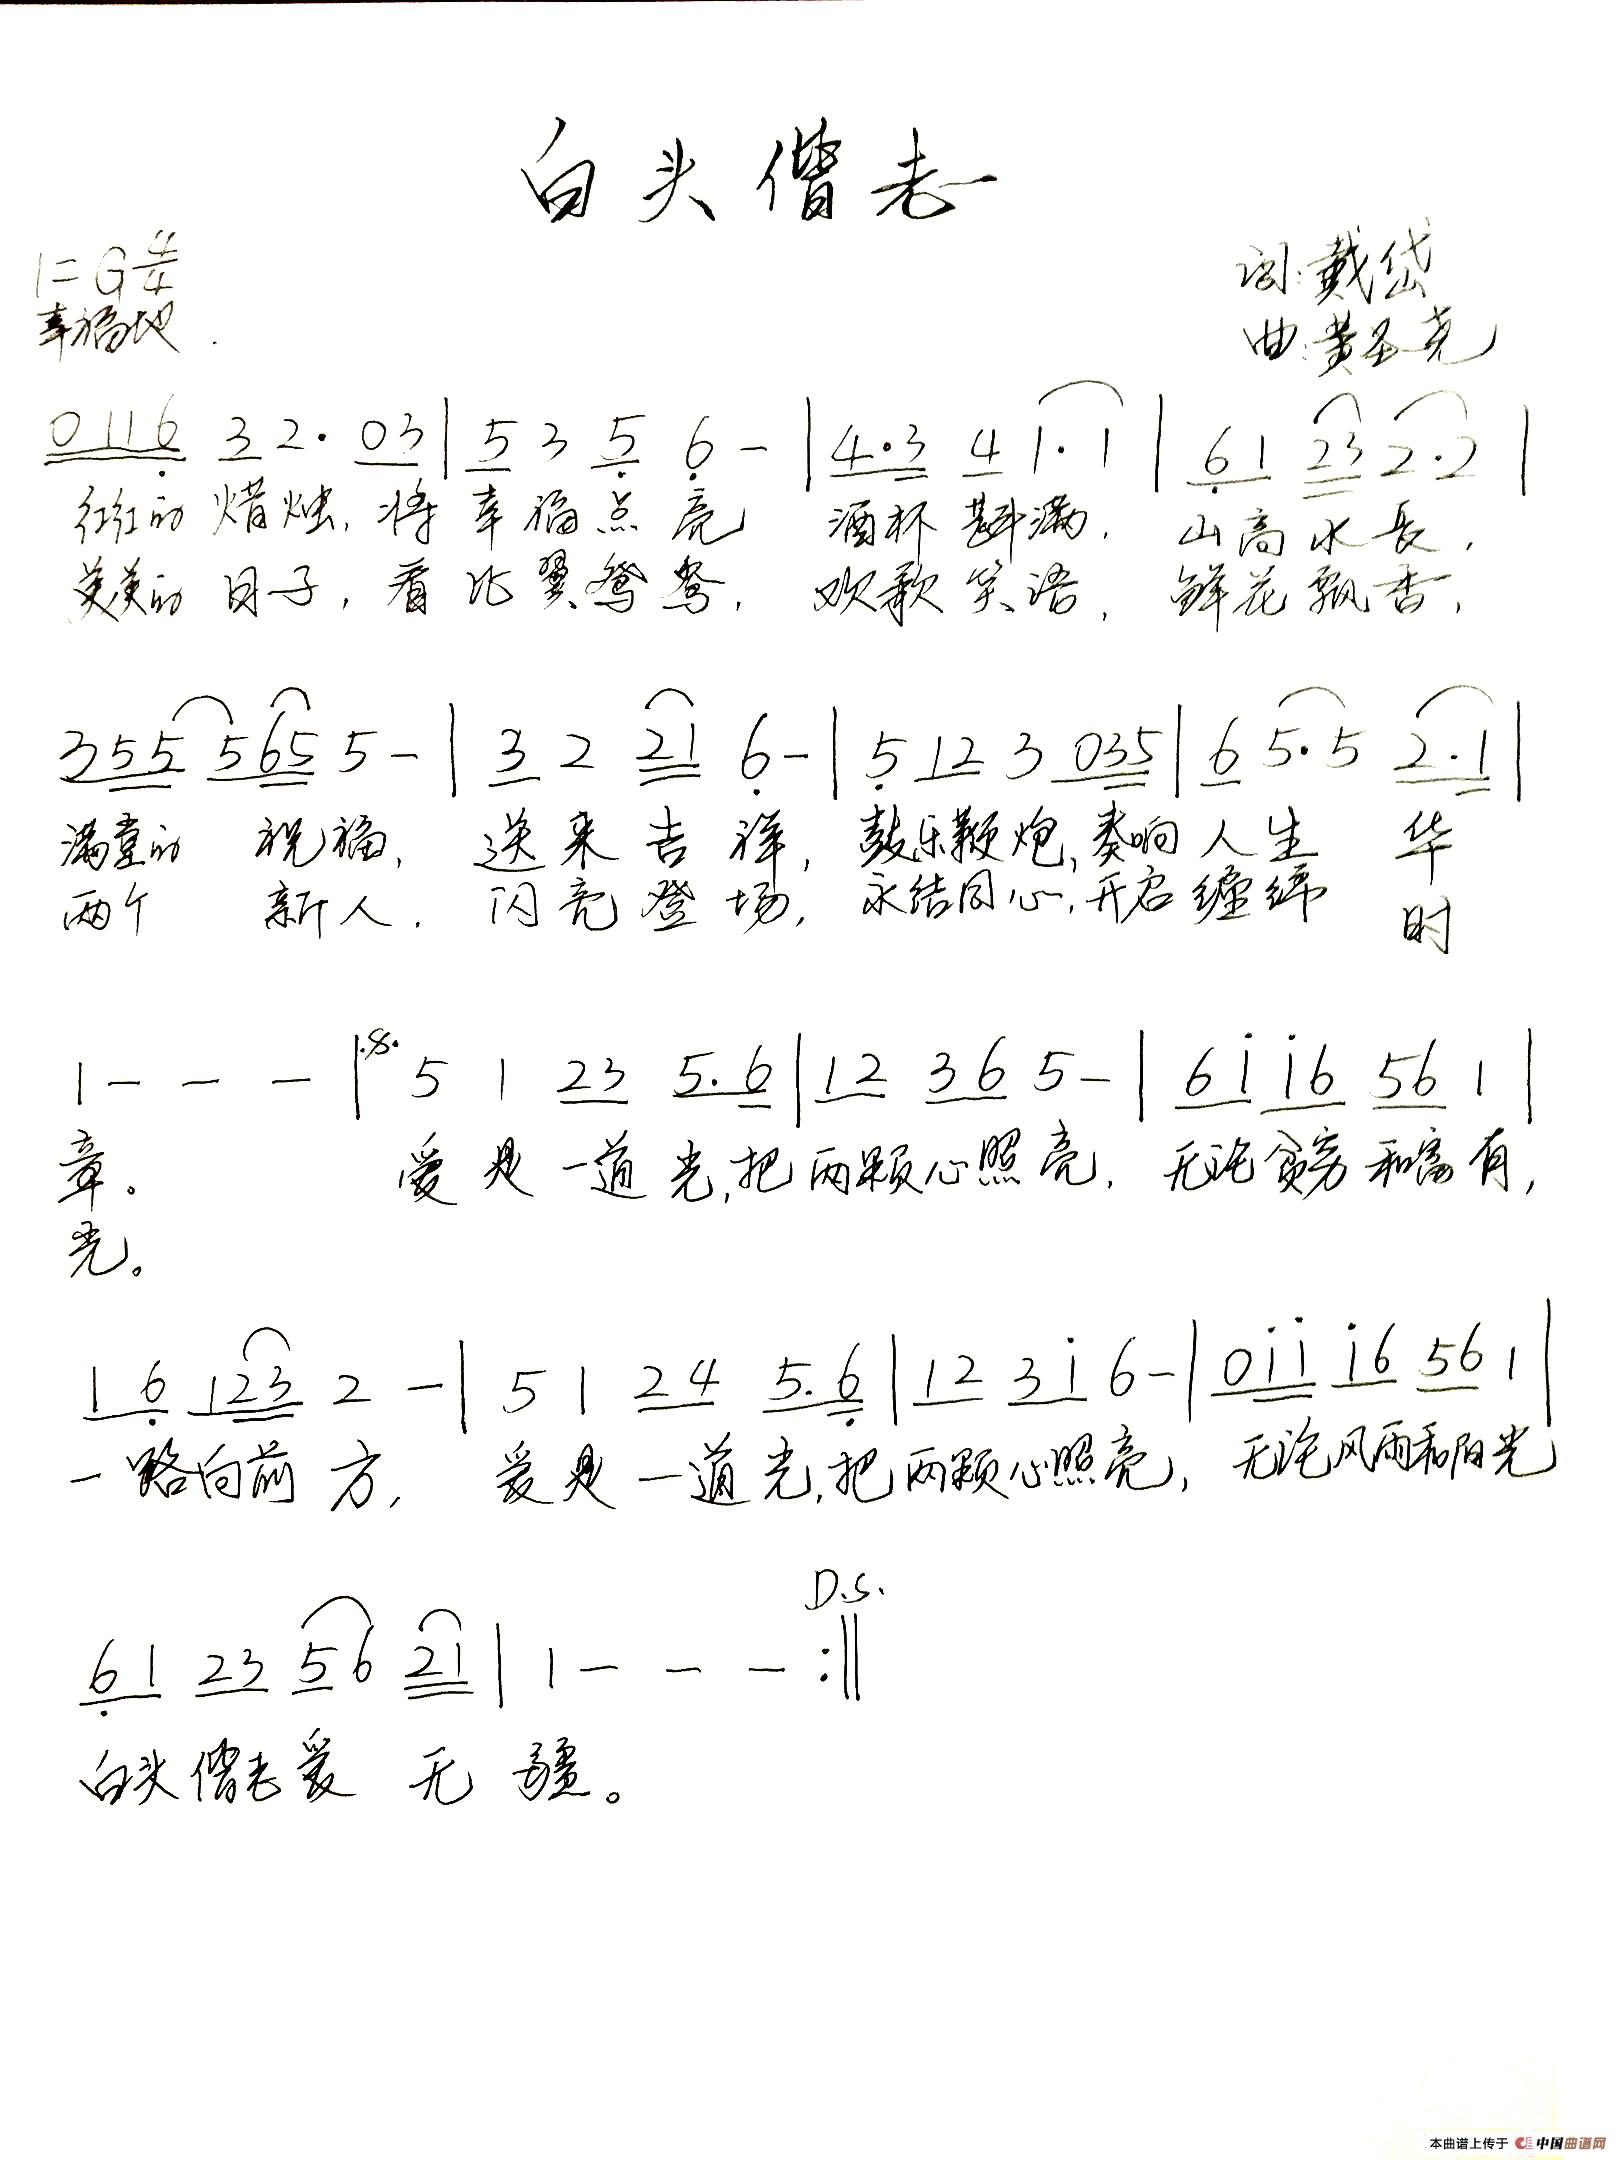 白头偕老
1=G 4/4
词:戴岱
幸福地.
曲:黄圣尧
0116 32·03|5356-|4·341·1|61232·2|
红红的蜡烛,将幸福点亮 酒杯斟满,山高水长,
美美的日子,看比翼鸳鸯,欢歌笑语,鲜花飘香,
3555655-|32216-|5123035|65·52·1|
满堂的祝福,送来吉祥,鼓乐鞭炮,奏响人生华
两个新人.闪亮登场,永结同心,开启缠绵时
1---|51235·6|12365-|6116561|
章。 爱是一道光,把两颗心照亮,无论贫穷和富有,
光。
161232-|51245·6|12316-|01116561|
一路向前方,爱是一道光,把两颗心照亮,无论风雨和阳光
D.S.
61235621|1---:‖
白头偕老爱无疆。
本曲谱上传于 中国曲谱网